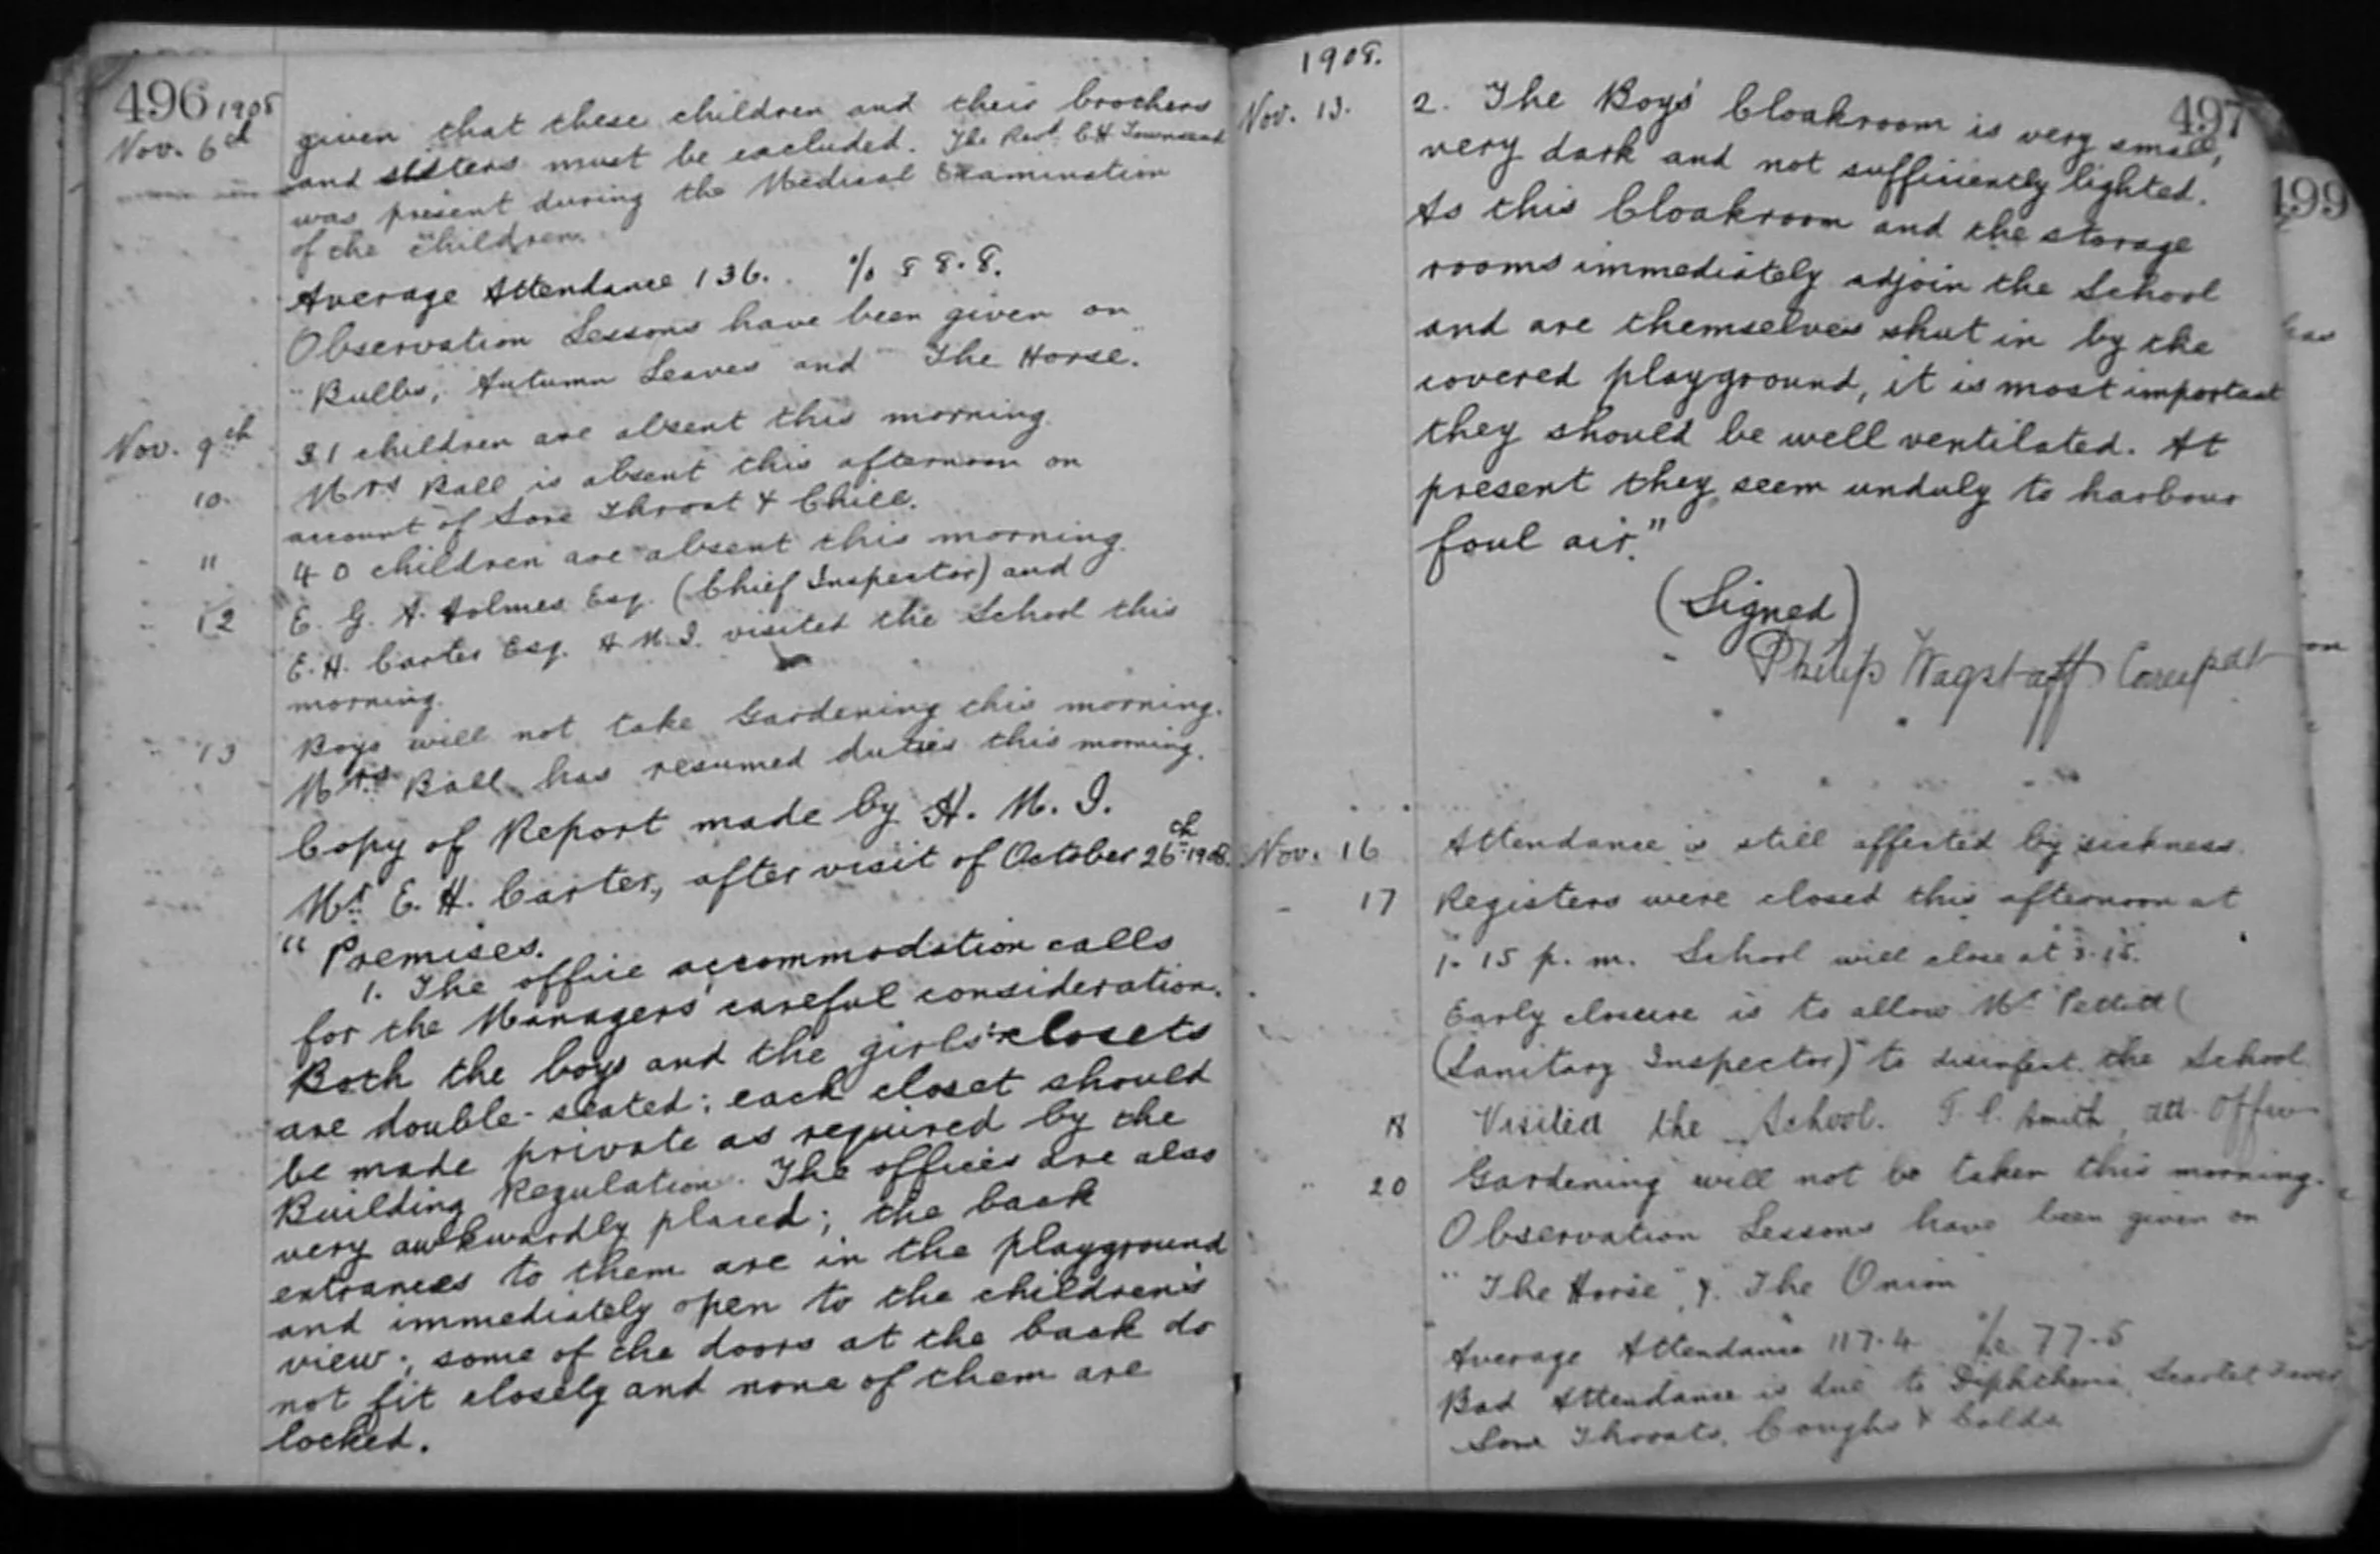 496 1908
Nov. 6th given that these children and their brothers
and sisters must be excluded. The Revd. C H Townsend
was present during the Medical Examination
of the children.
Average Attendance 136. % 88.8.
Observation Lessons have been given on
"Bulbs, Autumn Leaves and "The Horse."
Nov. 9th 31 children are absent this morning.
10. Mrs Ball is absent this afternoon on
account of Sore Throat & Chill.
" 11 40 children are absent this morning.
" 12 E. G. A. Holmes Esq. (Chief Inspector) and
E. H. Carter Esq. H. M. I. visited the School this
morning.
" 13 Boys will not take Gardening this morning.
Mrs Ball has resumed duties this morning.
Copy of Report made by H. M. I.
Mr. E. H. Carter, after visit of October 26th 1908.
"Premises.
1. The office accommodation calls
for the Managers' careful consideration.
Both the boys and the girls' closets
are double-seated; each closet should
be made private as required by the
Building Regulation. The offices are also
very awkwardly placed; the back
entrances to them are in the playground
and immediately open to the children's
view; some of the doors at the back do
not fit closely and none of them are
locked.
1908.
497
Nov. 13. 2. The Boys' Cloakroom is very small,
very dark and not sufficiently lighted.
As this Cloakroom and the storage
rooms immediately adjoin the School
and are themselves shut in by the
covered playground, it is most important
they should be well ventilated. At
present they seem unduly to harbour
foul air."
(Signed)
Philip Wagstaff Correspdt
Nov. 16 Attendance is still affected by sickness.
" 17 Registers were closed this afternoon at
1.15 p.m. School will close at 3.15.
Early closure is to allow Mr. Pettitt
(Sanitary Inspector) to disinfect the School.
18 Visited the School. Smith, Att. Officer
" 20 Gardening will not be taken this morning.
Observation Lessons have been given on
"The Horse" & "The Onion"
Average Attendance 117.4 % 77.5
Bad Attendance is due to Diphtheria, Scarlet Fever
Sore Throats, Coughs & Colds
499
on